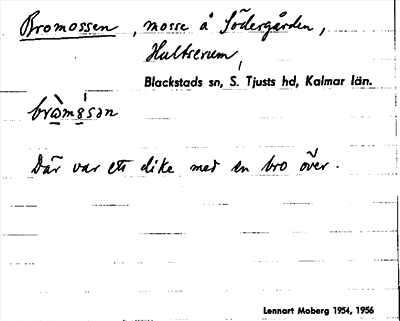 Bromossen, mosse å Södergården,
Hultserum,
Blackstads sn, S. Tjusts hd, Kalmar län.
Där var ett dike med en bro över.
Lennart Moberg 1954, 1956